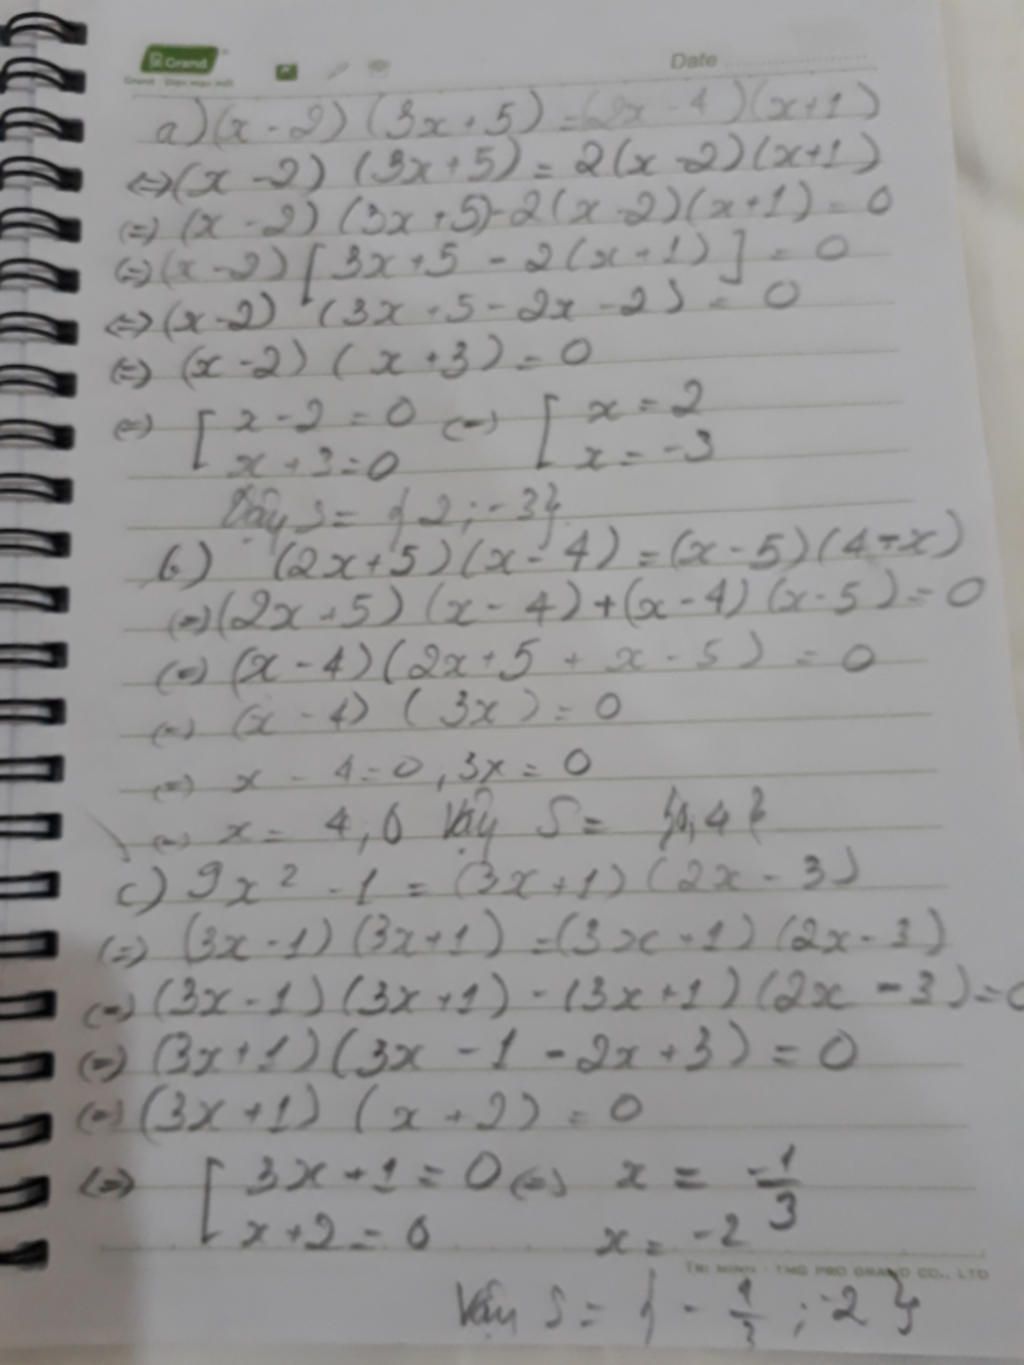 Grand
Date
a) (x - 2) (3x + 5) = (2x - 4) (x + 1)
<=> (x - 2) (3x + 5) = 2(x - 2)(x + 1)
<=> (x - 2) (3x + 5) - 2(x - 2)(x + 1) = 0
<=> (x - 2) [3x + 5 - 2(x + 1)] = 0
<=> (x - 2) (3x + 5 - 2x - 2) = 0
<=> (x - 2) (x + 3) = 0
<=> [ x - 2 = 0 <=> [ x = 2
x + 3 = 0 x = -3
Vậy S = {2; -3}
b) (2x + 5)(x - 4) = (x - 5)(4 - x)
<=> (2x + 5) (x - 4) + (x - 4) (x - 5) = 0
<=> (x - 4)(2x + 5 + x - 5) = 0
<=> (x - 4) (3x) = 0
<=> x - 4 = 0, 3x = 0
<=> x = 4, 0 Vậy S = {0, 4}
c) 9x² - 1 = (3x + 1) (2x - 3)
<=> (3x - 1) (3x + 1) = (3x + 1) (2x - 3)
<=> (3x - 1) (3x + 1) - (3x + 1) (2x - 3) = 0
<=> (3x + 1)(3x - 1 - 2x + 3) = 0
<=> (3x + 1) (x + 2) = 0
<=> [ 3x + 1 = 0 <=> x = -1/3
x + 2 = 0 x = -2
TRI MINH - TMG PRO GRAND CO., LTD
Vậy S = { -1/3 ; -2 }